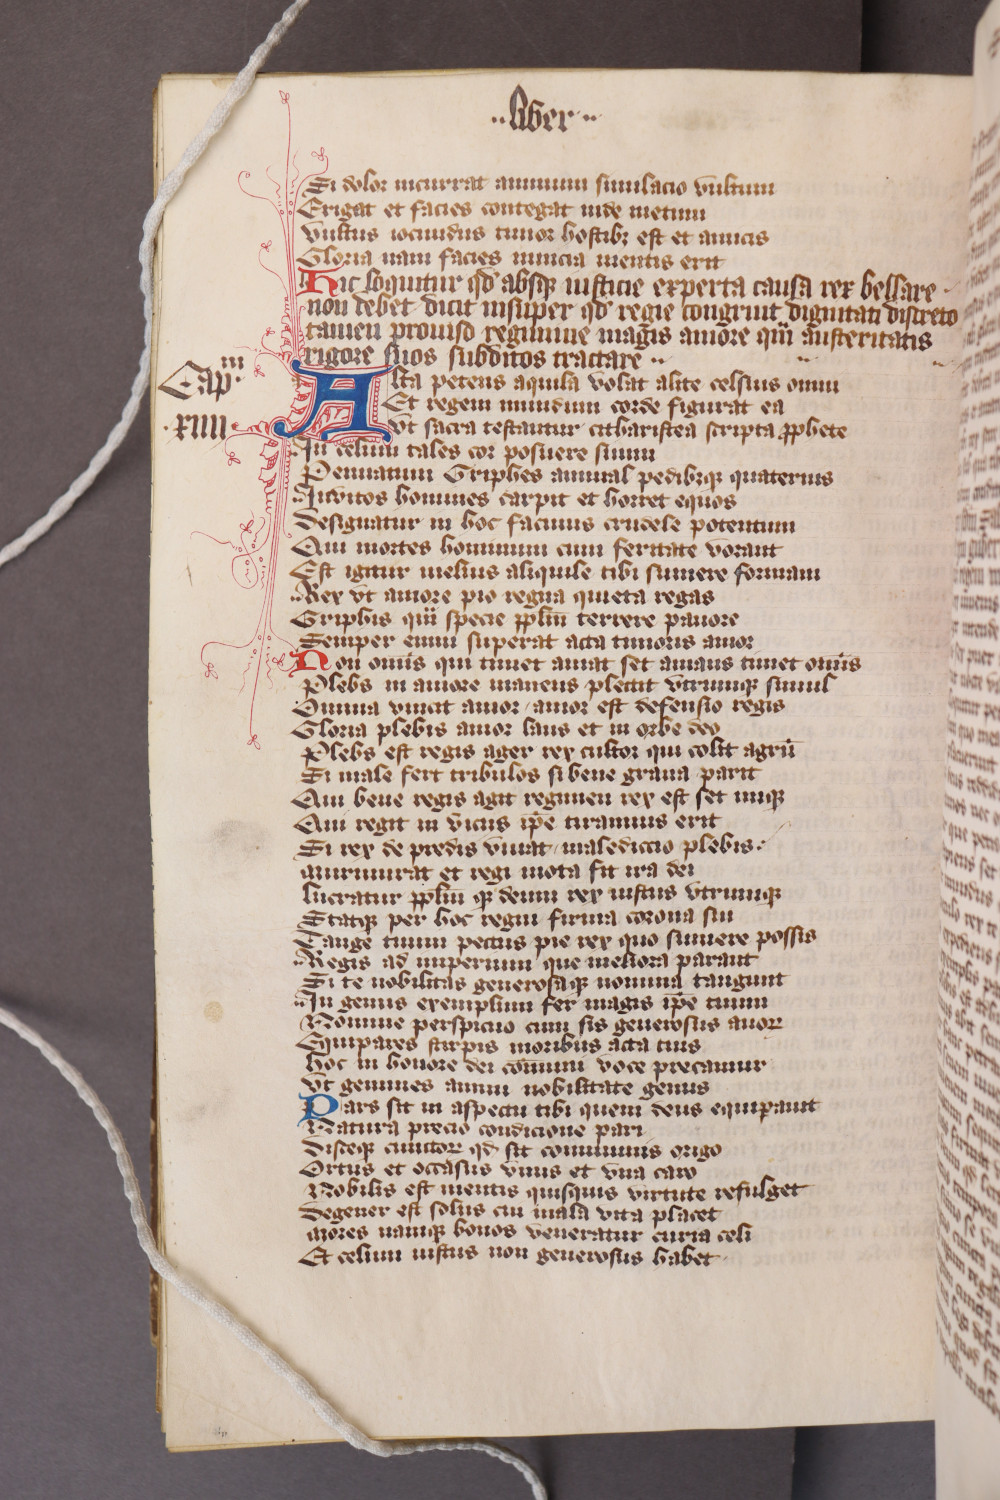 ..Liber..
Si dolor incurrat animum simulacio vultum
Erigat et facies contegat inde metum
vultus iocundus timor hostibȝ est et amicis
Gloria nam facies nuncia mentis erit
Hic loquitur qd absqȝ iusticie experta causa rex bellare
non debet dicit insuper qd regie congruit dignitati discreto
tamen prouiso regimine magis amore qm̄ austeritatis
rigore suos subditos tractare ..
Capm
.xiiii.
Alta petens aquila volat alite celsius omni
Et regem mundum corde figurat ea
vt sacra testantur citharistea scripta ꝓphete
In celum tales cor posuere suum
Pennatum Griphes animal pedibȝqȝ quaternis
Inuitos homines carpit et horret equos
Designatur in hoc facinus crudele potentum
Qui mortes hominum cum feritate vorant
Est igitur melius aliquile tibi sumere formam
Rex vt amore pio regna quieta regas
Griphis qm̄ specie ppl̄m terrere pauore
Semper enim superat acta timoris amor
Non om̄is qui timet amat set amans timet om̄is
Plebs in amore manens plectit vtrumqȝ simul
Omnia vincit amor / amor est defensio regis
Gloria plebis amor laus et in orbe deo
Plebs est regis ager rex cultor qui colit agrū
Si male fert tribulos si bene grana parit
Qui bene regis agit regimen rex est set iniqȝ
Qui regit in vicus ip̄e tirannus erit
Si rex de predis viuat / malediccio plebis.
murmurat et regi mota fit ira dei
lucratur ppl̄m qȝ deum rex iustus vtrumqȝ
Statqȝ per hoc regni firma corona sui
Tange tuum pectus pie rex quo sumere possis
Regis ad imperium que meliora parant
Si te nobilitas generosaqȝ nomina tangunt
In genus exemplum fer magis ip̄e tuum
Nomine perspicuo cum sis generosus auorȝ
Equipares stirpis moribus acta tuis
hoc in honore dei cōmuni voce precamur
vt gemines animi nobilitate genus
Pars sit in aspectu tibi quem deus equiparit
Natura precio condicione pari
Disceqȝ cunctorȝ qd sit communis origo
Ortus et occasus vnus et vna caro
Nobilis est mentis quisquis virtute refulget
Degener est solus cui mala vita placet
mores namqȝ bonos veneratur curia celi
Et celum iustus non generosus habet